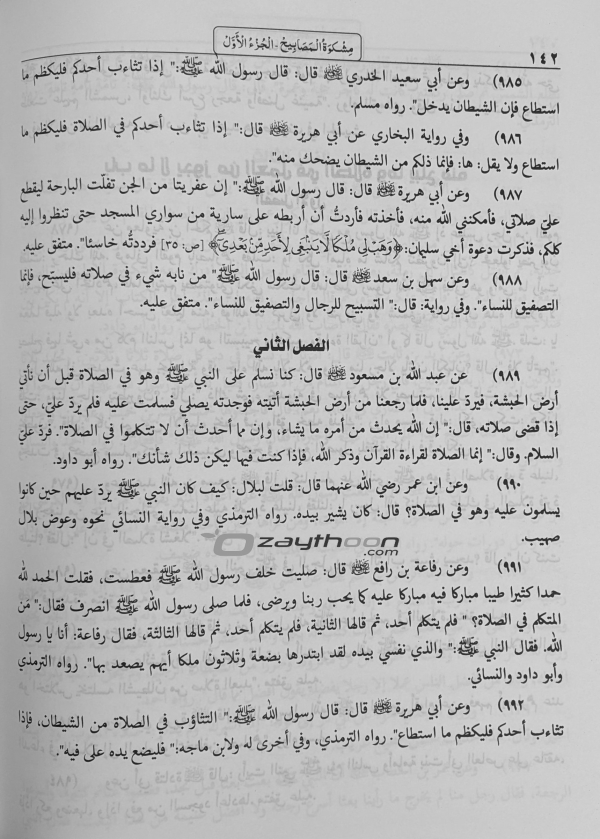 مِشكوٰة المَصَابيح - الجُزءُ الأوَّل
١٤٢
٩٨٥) وعن أبي سعيد الخدري ﷺ قال: قال رسول الله ﷺ:" إذا تثاءب أحدكم فليكظم ما
استطاع فإن الشيطان يدخل". رواه مسلم.
٩٨٦) وفي رواية البخاري عن أبي هريرة ﷺ قال:" إذا تثاءب أحدكم في الصلاة فليكظم ما
استطاع ولا يقل: ها: فإنما ذلكم من الشيطان يضحك منه".
٩٨٧) وعن أبي هريرة ﷺ قال: قال رسول الله ﷺ:" إن عفريتا من الجن تفلّت البارحة ليقطع
عليّ صلاتي، فأمكنني الله منه، فأخذته فأردتُ أن أربطه على سارية من سواري المسجد حتى تنظروا إليه
كلكم، فذكرت دعوة أخي سليمان: ﴿وَهَبْ لِي مُلْكًا لَّا يَنۢبَغِي لِأَحَدٍ مِّنۢ بَعْدِيٓ﴾ [ص: ٣٥] فرددتُّه خاسئا". متفق عليه.
٩٨٨) وعن سهل بن سعد ﷺ قال: قال رسول الله ﷺ" من نابه شيء في صلاته فليسبّح، فإنما
التصفيق للنساء". وفي رواية: قال:" التسبيح للرجال والتصفيق للنساء". متفق عليه.
الفصل الثاني
٩٨٩) عن عبد الله بن مسعود ﷺ قال: كنا نسلم على النبي ﷺ وهو في الصلاة قبل أن نأتي
أرض الحبشة، فيردّ علينا، فلما رجعنا من أرض الحبشة أتيته فوجدته يصلي فسلمت عليه فلم يردّ عليّ، حتى
إذا قضى صلاته، قال:" إن الله يحدث من أمره ما يشاء، وإن مما أحدث أن لا تتكلموا في الصلاة". فردّ عليّ
السلام. وقال:" إنما الصلاة لقراءة القرآن وذكر الله، فإذا كنت فيها ليكن ذلك شأنك". رواه أبو داود.
٩٩٠) وعن ابن عمر رضي الله عنهما قال: قلت لبلال: كيف كان النبي ﷺ يردّ عليهم حين كانوا
يسلمون عليه وهو في الصلاة؟ قال: كان يشير بيده. رواه الترمذي وفي رواية النسائي نحوه وعوض بلال
صهيب.
Ozaythoon
.com
٩٩١) وعن رفاعة بن رافع ﷺ قال: صليت خلف رسول الله ﷺ فعطست، فقلت الحمد لله
حمدا كثيرا طيبا مباركا فيه مباركا عليه كما يحب ربنا ويرضى، فلما صلى رسول الله ﷺ انصرف فقال:" مَن
المتكلم في الصلاة؟ " فلم يتكلم أحد، ثم قالها الثانية، فلم يتكلم أحد، ثم قالها الثالثة، فقال رفاعة: أنا يا رسول
الله. فقال النبي ﷺ:" والذي نفسي بيده لقد ابتدرها بضعة وثلاثون ملكا أيهم يصعد بها". رواه الترمذي
وأبو داود والنسائي.
٩٩٢) وعن أبي هريرة ﷺ قال: قال رسول الله ﷺ:" التثاؤب في الصلاة من الشيطان، فإذا
تثاءب أحدكم فليكظم ما استطاع". رواه الترمذي، وفي أخرى له ولابن ماجه:" فليضع يده على فيه".